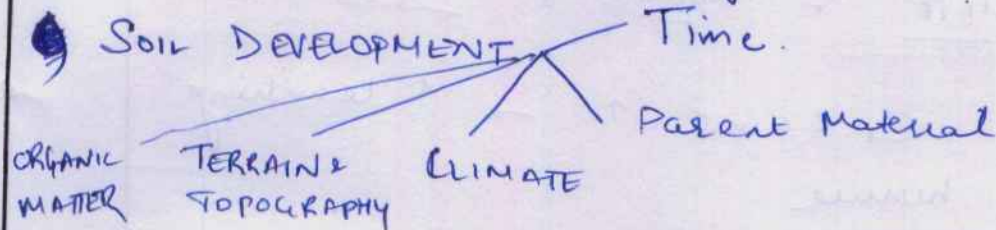 SOIL DEVELOPMENT
Time.
Parent Material
ORGANIC MATTER
TERRAIN & TOPOGRAPHY
CLIMATE